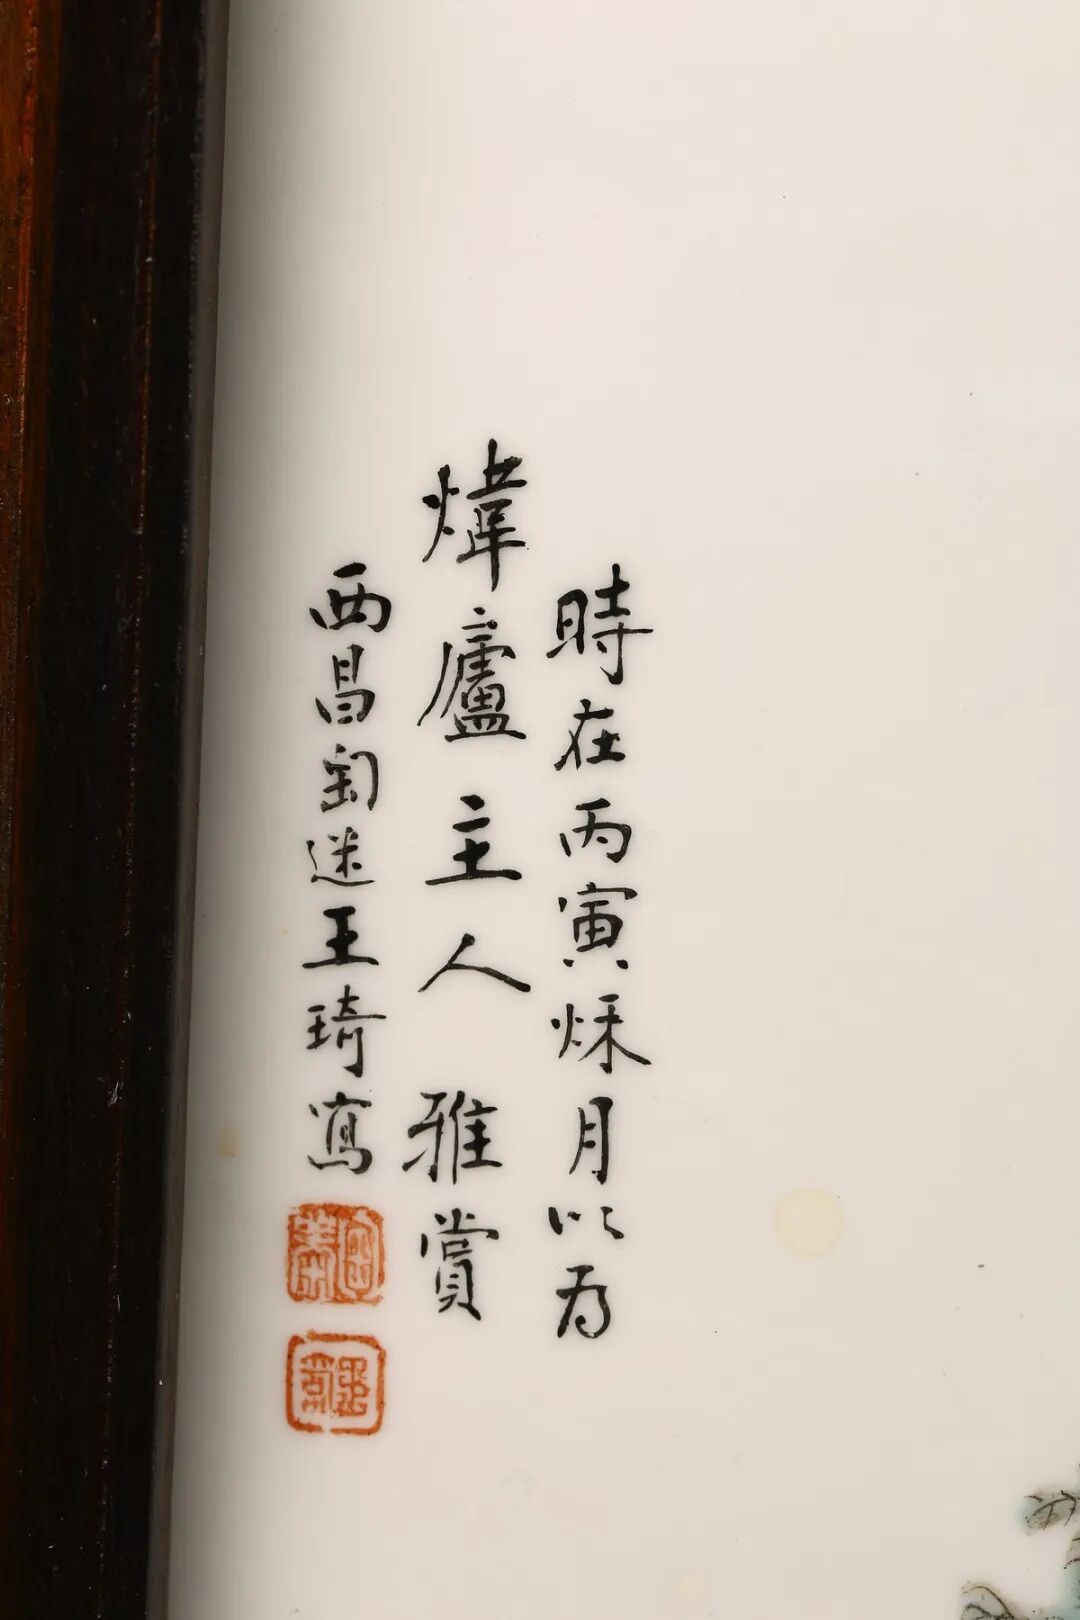 時在丙寅秌月以为
煒廬主人 雅賞
西昌匋迷王琦寫